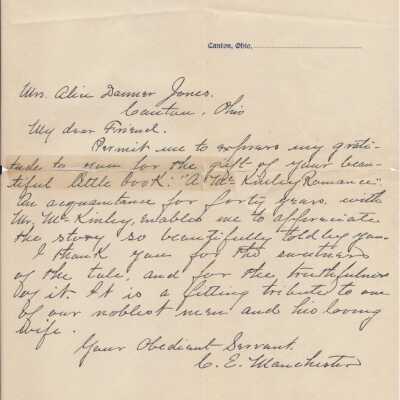 Canton, Ohio,
Mrs. Alice Danner Jones.
Canton, Ohio
My dear Friend.
Permit me to express my grati-
tude to you for the gift of your beau-
tiful little book: "A McKinley Romance".
An acquaintance for forty years, with
Mr. McKinley, enables me to appreciate
the story so beautifully told by you.
I thank you for the sweetness
of the tale, and for the truthfulness
of it. It is a fitting tribute to one
of our noblest men and his loving
wife.
Your Obediant Servant.
C. E. Manchester